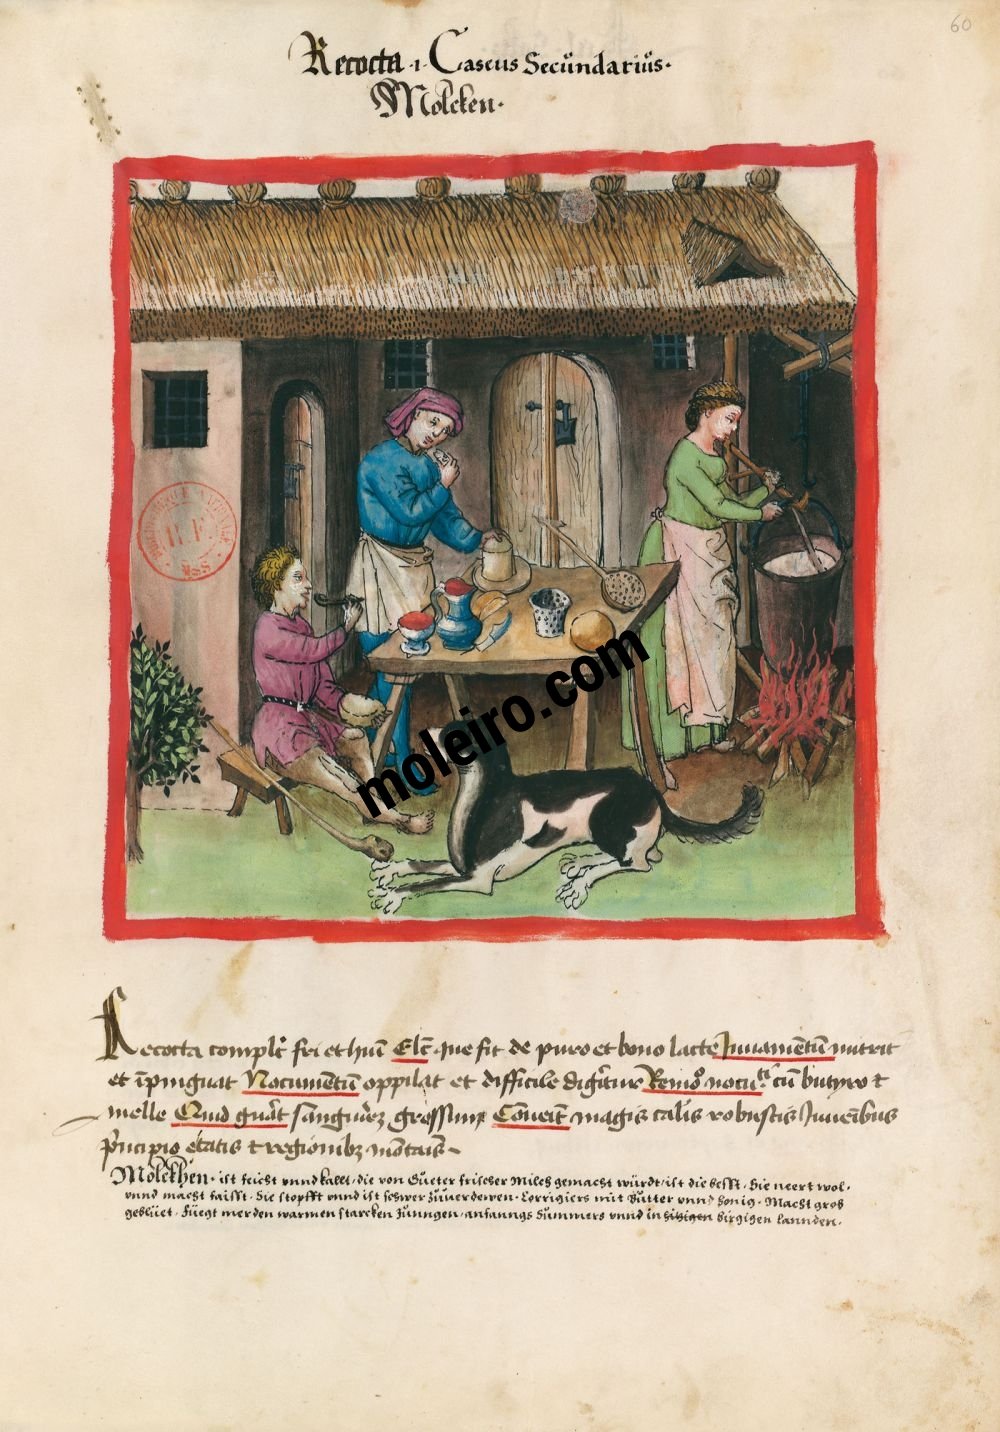 60
Recocta ·i· Caseus Secundarius·
Molcken·
B.F.
MSS
moleiro.com
Recocta complō fri et hūi Elc̄ que fit de puro et bono lacte Juuamētū nutrit
et īpinguat Nocumētū oppilat et difficile digītur Remō nocūti cū butyro τ
melle Quid gnāt sanguinez grossum Cōueīt magis calis robustis Juuēibus
pricipio etatis τ regionibz mōtais
Molckhen· ist feicht vnnd kallt· die von Gueter frischer Milch gemacht würdt· ist die besst· Sie neert wol·
vnnd macht faisst· Sie stopfft vnnd ist schwer zuuerdewen· Corrigiers mit Butter vnnd honig· Macht grob
geblüet· Füegt werden warmen starcken Junngen· anfanngs Summers vnnd in hitzigen birgigen lannden·